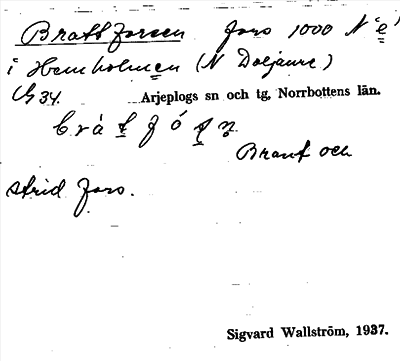 Brattforsen fors 1000 N "e"
i Hemholmen (N Doljaure)
G 34. Arjeplogs sn och tg, Norrbottens län.
Brant och
strid fors.
Sigvard Wallström, 1937.